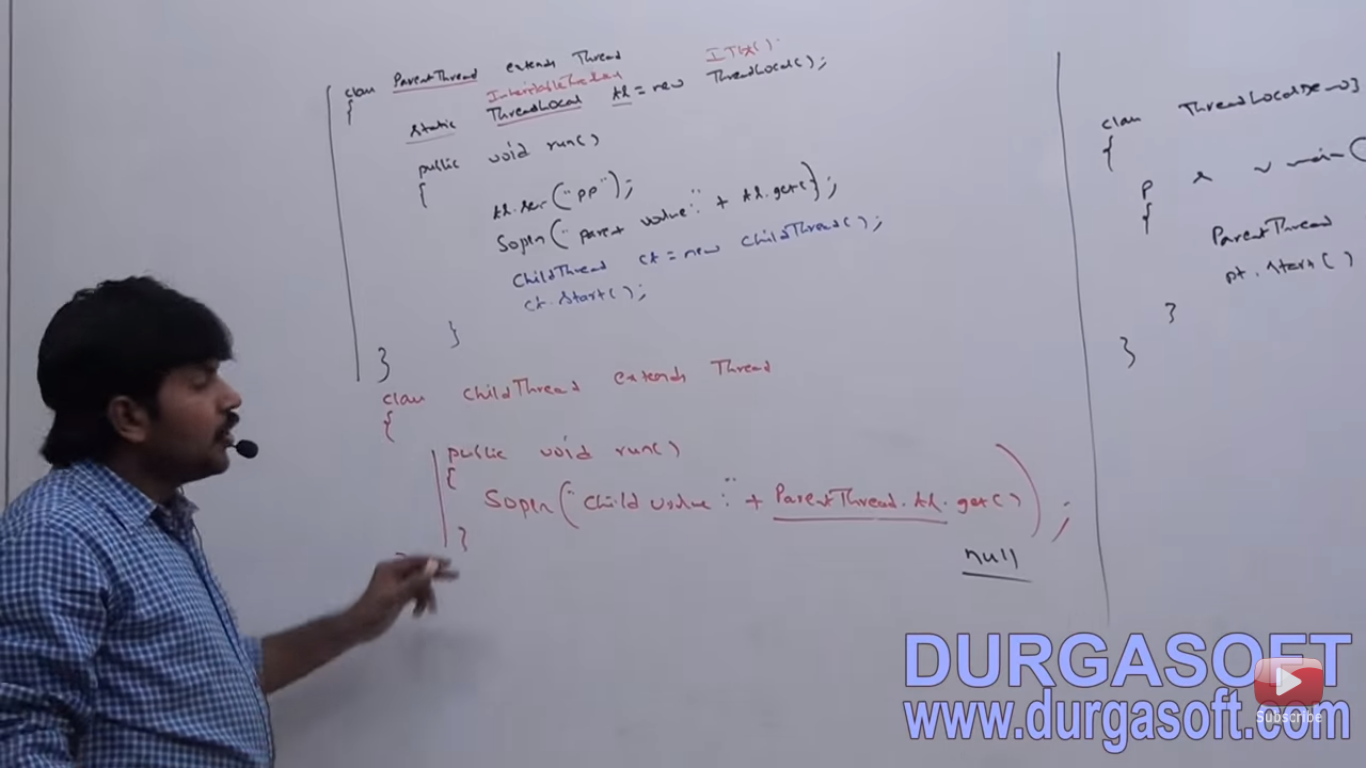 class ParentThread extends Thread
{
InheritableThreadLocal ITL();
static ThreadLocal tl = new ThreadLocal();
public void run()
{
tl.set("pp");
Sopln("parent value:" + tl.get());
ChildThread ct = new ChildThread();
ct.start();
}
}
class ChildThread extends Thread
{
public void run()
{
Sopln("Child value:" + ParentThread.tl.get());
}
null
class ThreadLocalDemo3
{
p s v main(
{
ParentThread
pt.start()
}
}
DURGASOFT
www.durgasoft.com
Subscribe